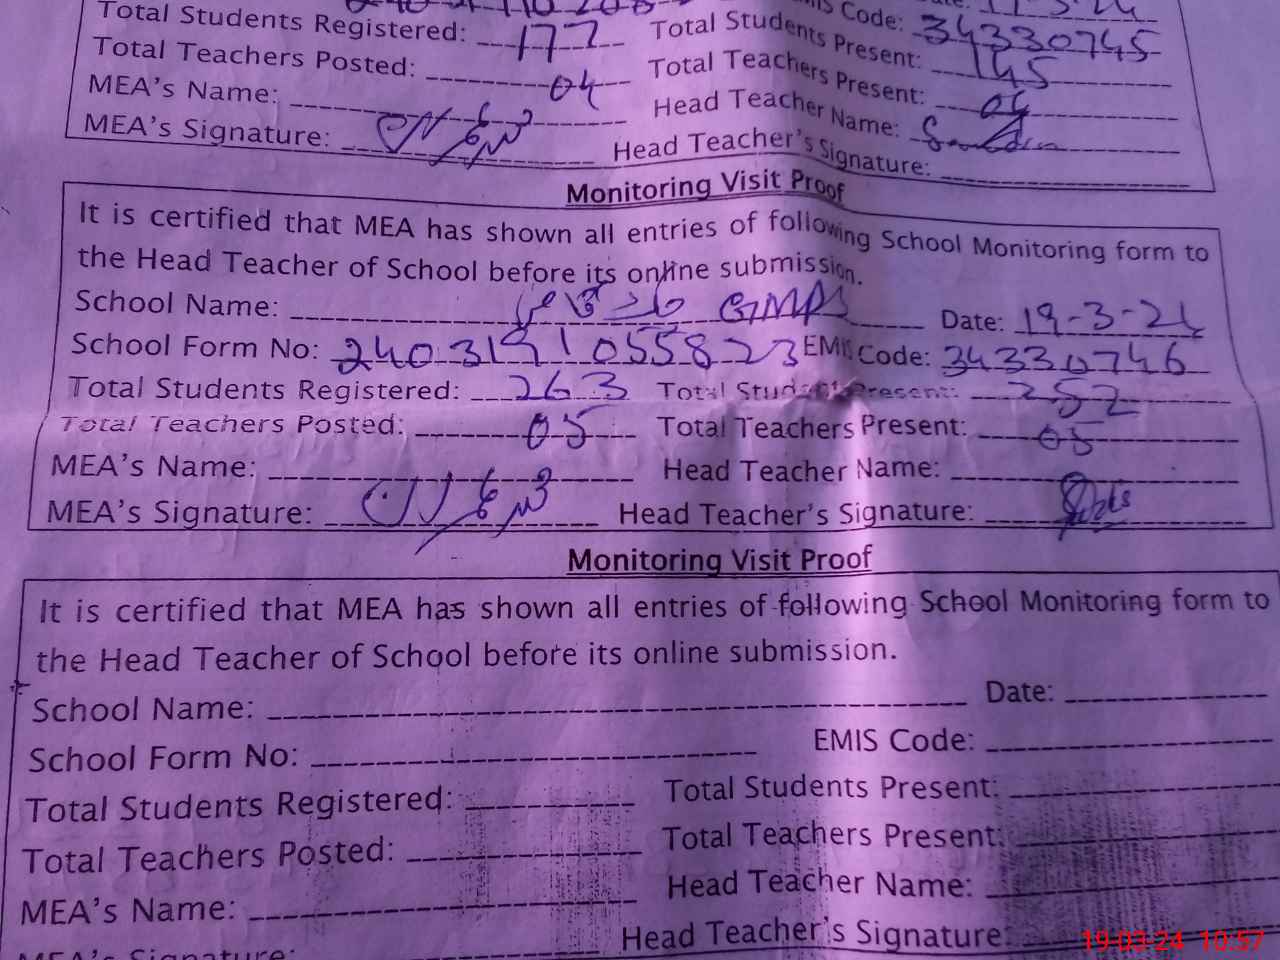 Total Students Registered: 177 Total Students Present: 145
EMIS Code: 34330745
Total Teachers Posted: 04 Total Teachers Present: 04
MEA's Name: Head Teacher Name:
MEA's Signature: Head Teacher's Signature:
Monitoring Visit Proof
It is certified that MEA has shown all entries of following School Monitoring form to
the Head Teacher of School before its online submission.
School Name: GMPS Date: 19-3-24
School Form No: 2403191055823 EMIS Code: 34330746
Total Students Registered: 263 Total Students Present: 252
Total Teachers Posted: 05 Total Teachers Present: 05
MEA's Name: Head Teacher Name:
MEA's Signature: Head Teacher's Signature:
Monitoring Visit Proof
It is certified that MEA has shown all entries of following School Monitoring form to
the Head Teacher of School before its online submission.
School Name: Date:
School Form No: EMIS Code:
Total Students Registered: Total Students Present:
Total Teachers Posted: Total Teachers Present:
MEA's Name: Head Teacher Name:
MEA's Signature: Head Teacher's Signature:
19-03-24 10:57